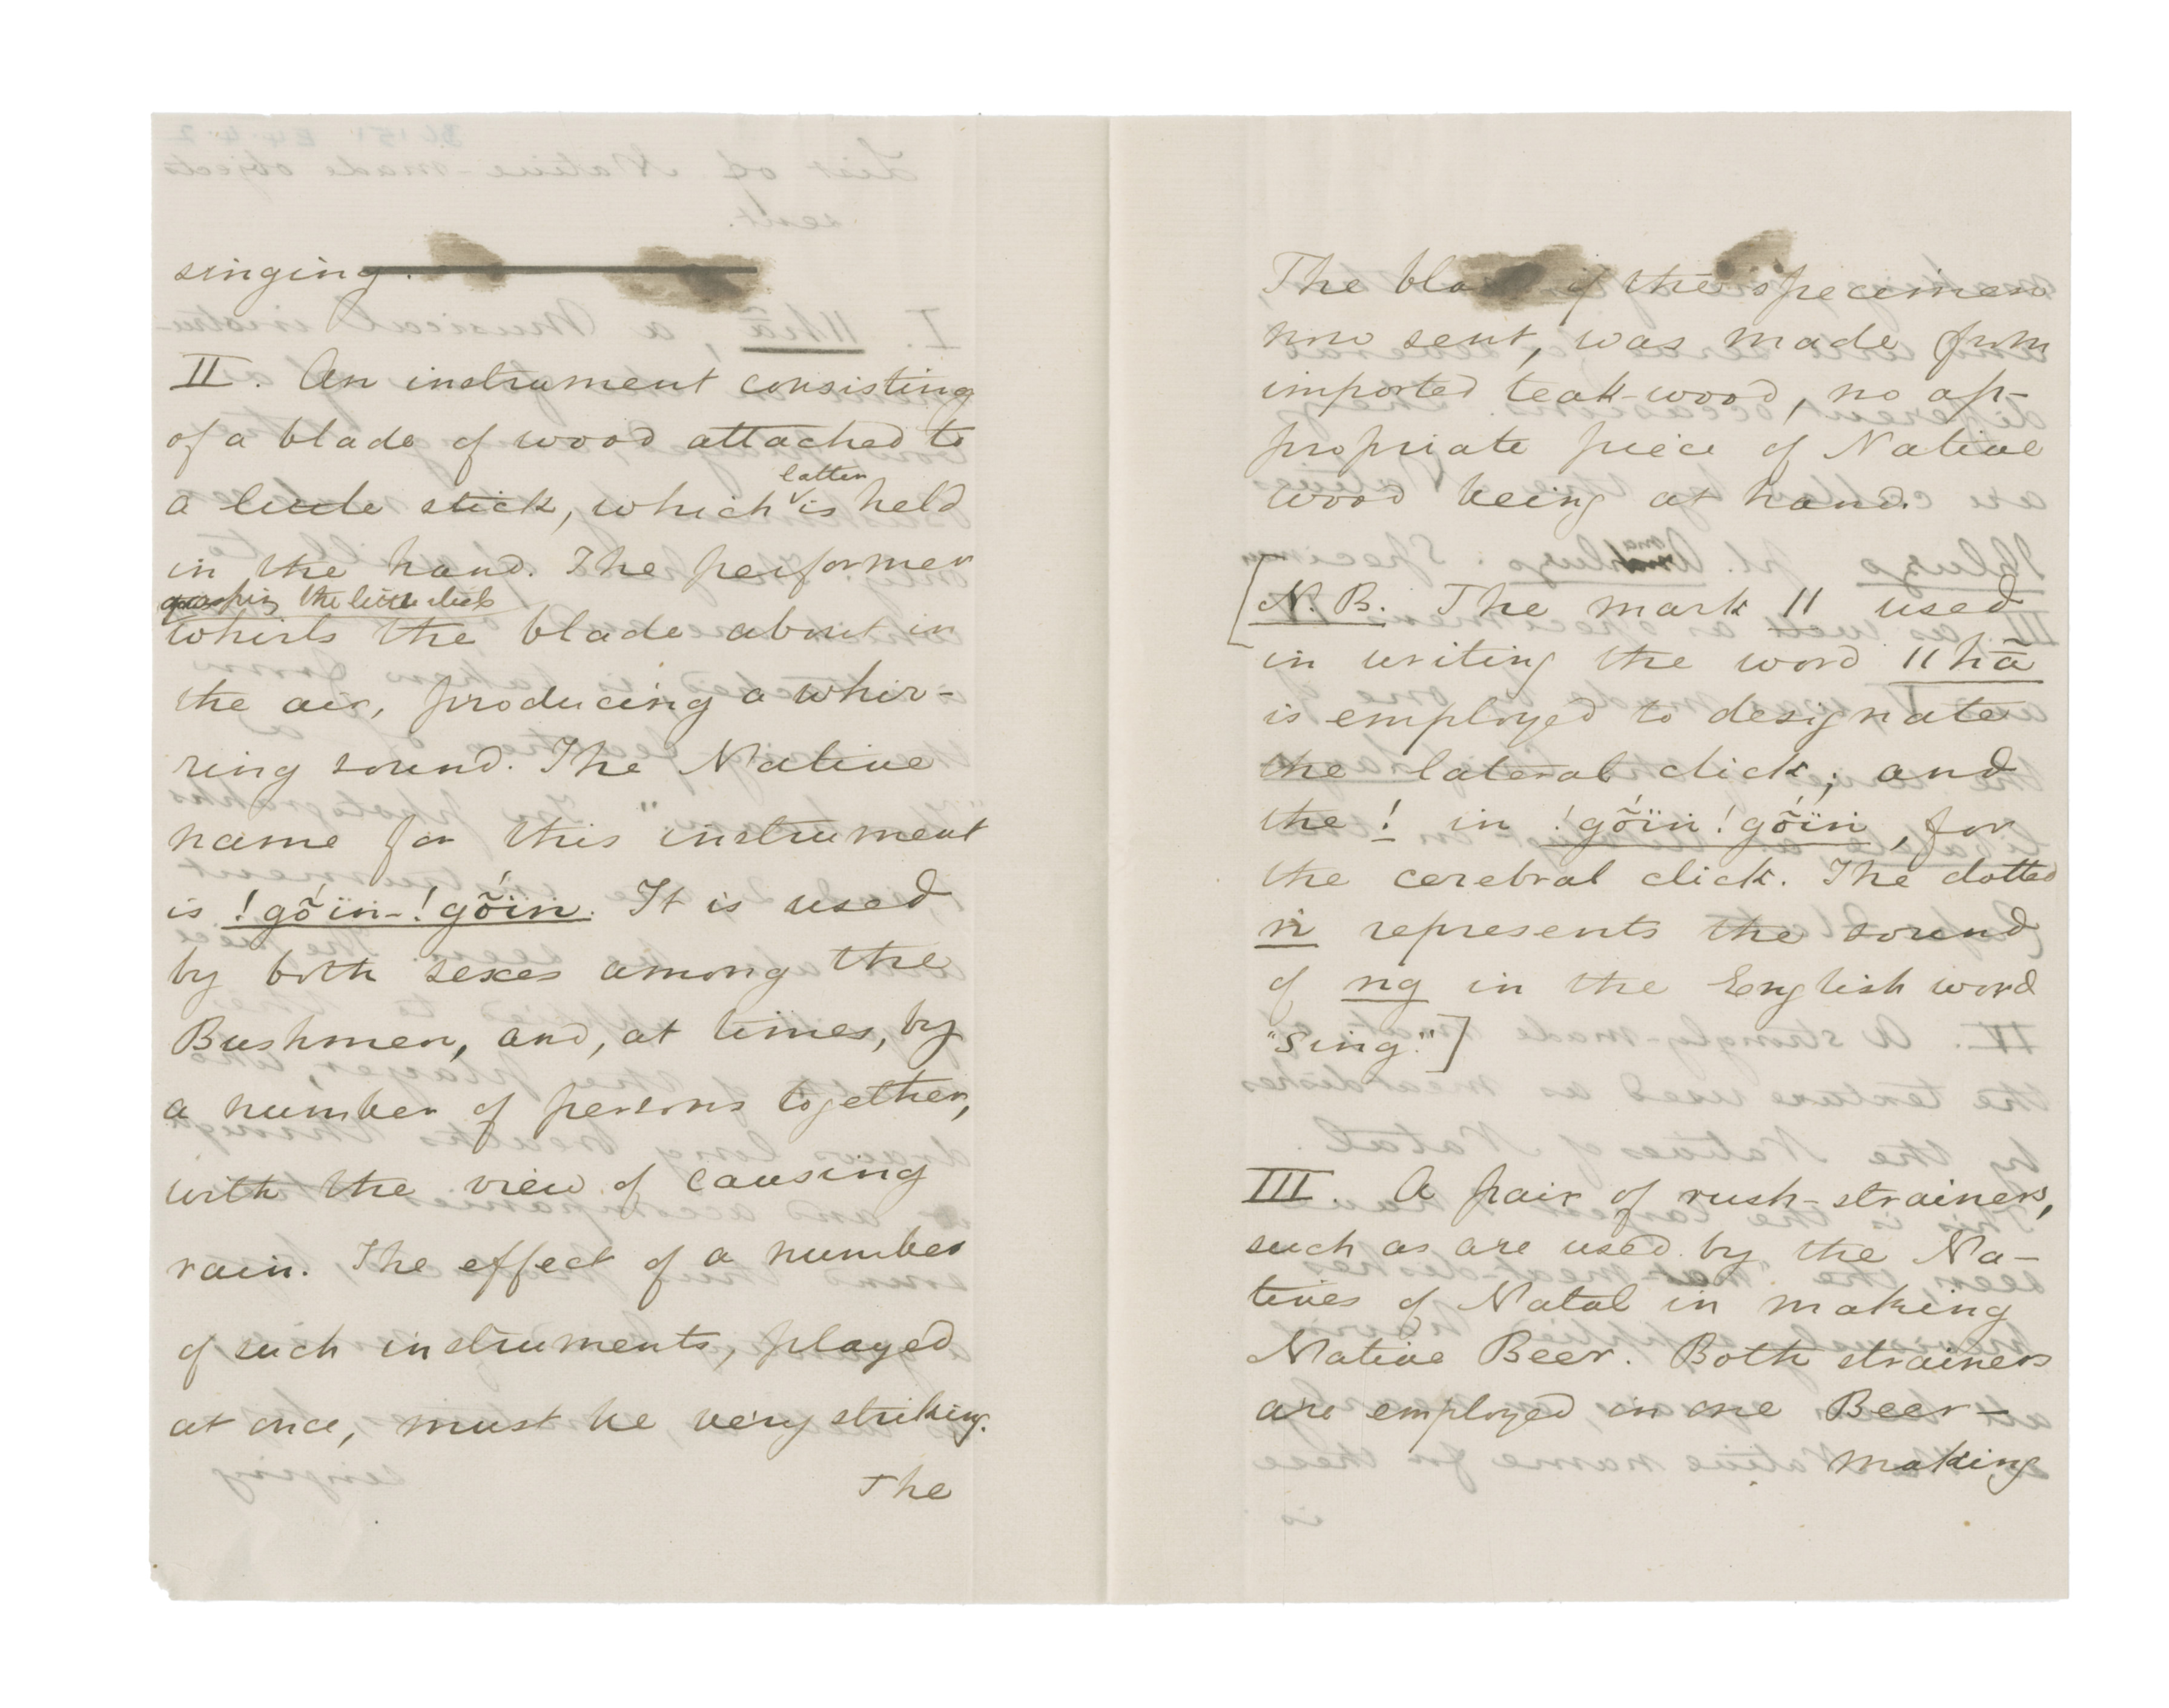 singing.
II. An instrument consisting
of a blade of wood attached to
a little stick, which latter is held
in the hand. The performer
grasping the little stick
whirls the blade about in
the air, producing a whir-
ring sound. The Native
name for this instrument
is !gṍïṅ-!gṍïṅ. It is used
by both sexes among the
Bushmen, and, at times, by
a number of persons together,
with the view of causing
rain. The effect of a number
of such instruments, played
at once, must be very striking.
The
The blade of the specimen
now sent, was made from
imported teak-wood, no ap-
propriate piece of Native
wood being at hand.
[N.B. The mark || used
in writing the word ||hā
is employed to designate
the lateral click; and
the ! in !gṍïṅ!gṍïṅ, for
the cerebral click. The dotted
ṅ represents the sound
of ng in the English word
"sing."]
III. A pair of rush-strainers,
such as are used by the Na-
tives of Natal in making
Native Beer. Both strainers
are employed in one Beer-
making